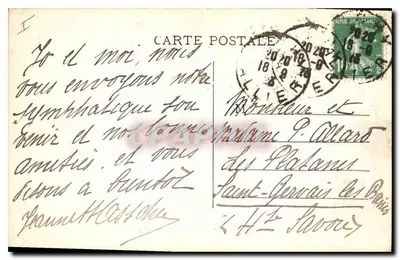 I
CARTE POSTALE
Jo et moi, nous
vous envoyons notre
sympathique sou
venir et nos bonnes
amitiés. et vous
disons à bientôt
Monsieur et
Madame P. Allard
des Platanes
Saint-Gervais les Bains
Hte Savoie